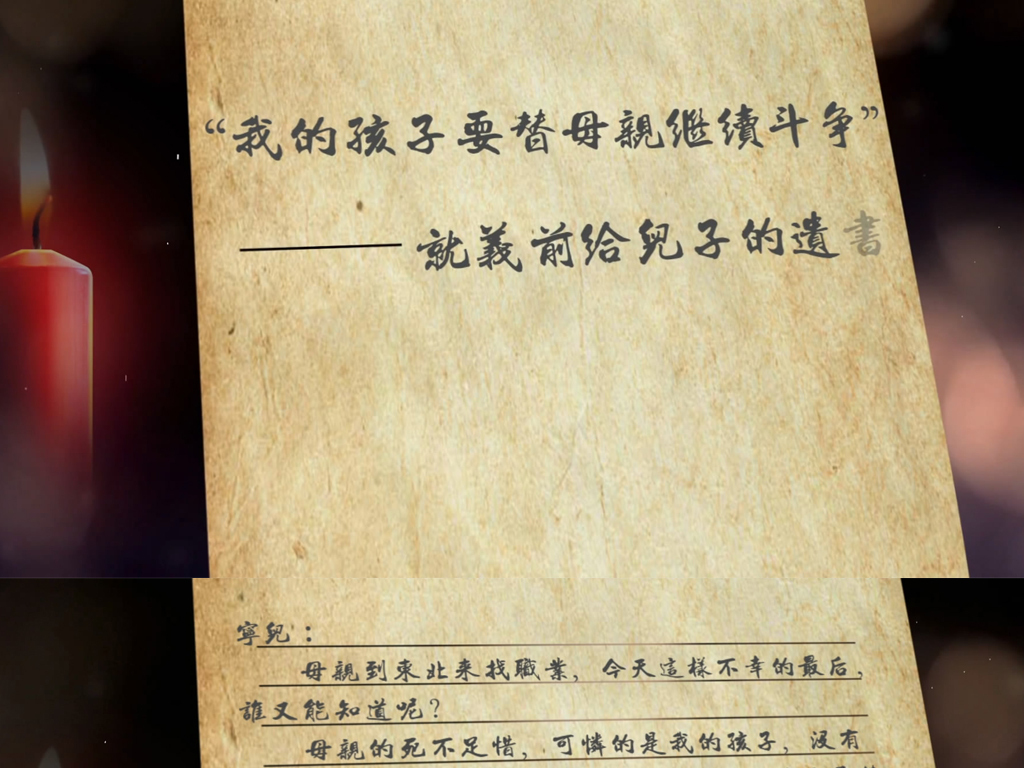 “我的孩子要替母親继續斗争”
——就義前給兒子的遺書
寧兒：
母親到東北来找職業，今天這樣不幸的最后，
誰又能知道呢？
母親的死不足惜，可憐的是我的孩子，没有